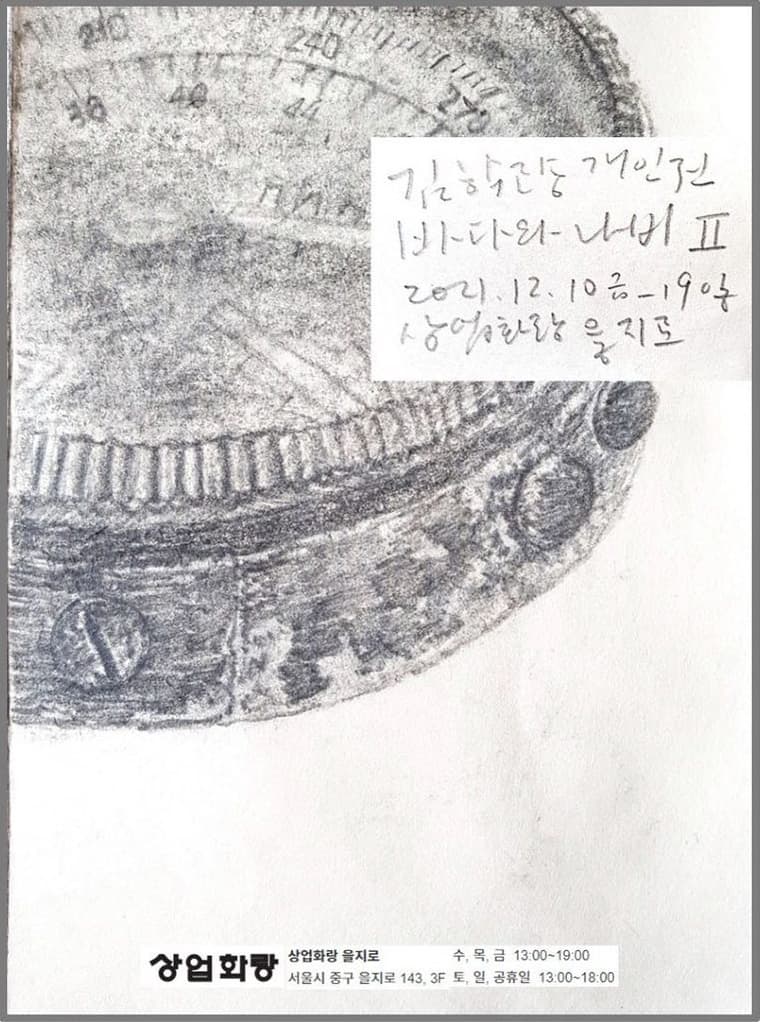 210 240 270
36 40 44
김학량 개인전
바다와 나비 II
2021.12.10금-19일
상업화랑 을지로
상업화랑
상업화랑 을지로 수, 목, 금 13:00~19:00
서울시 중구 을지로 143, 3F 토, 일, 공휴일 13:00~18:00